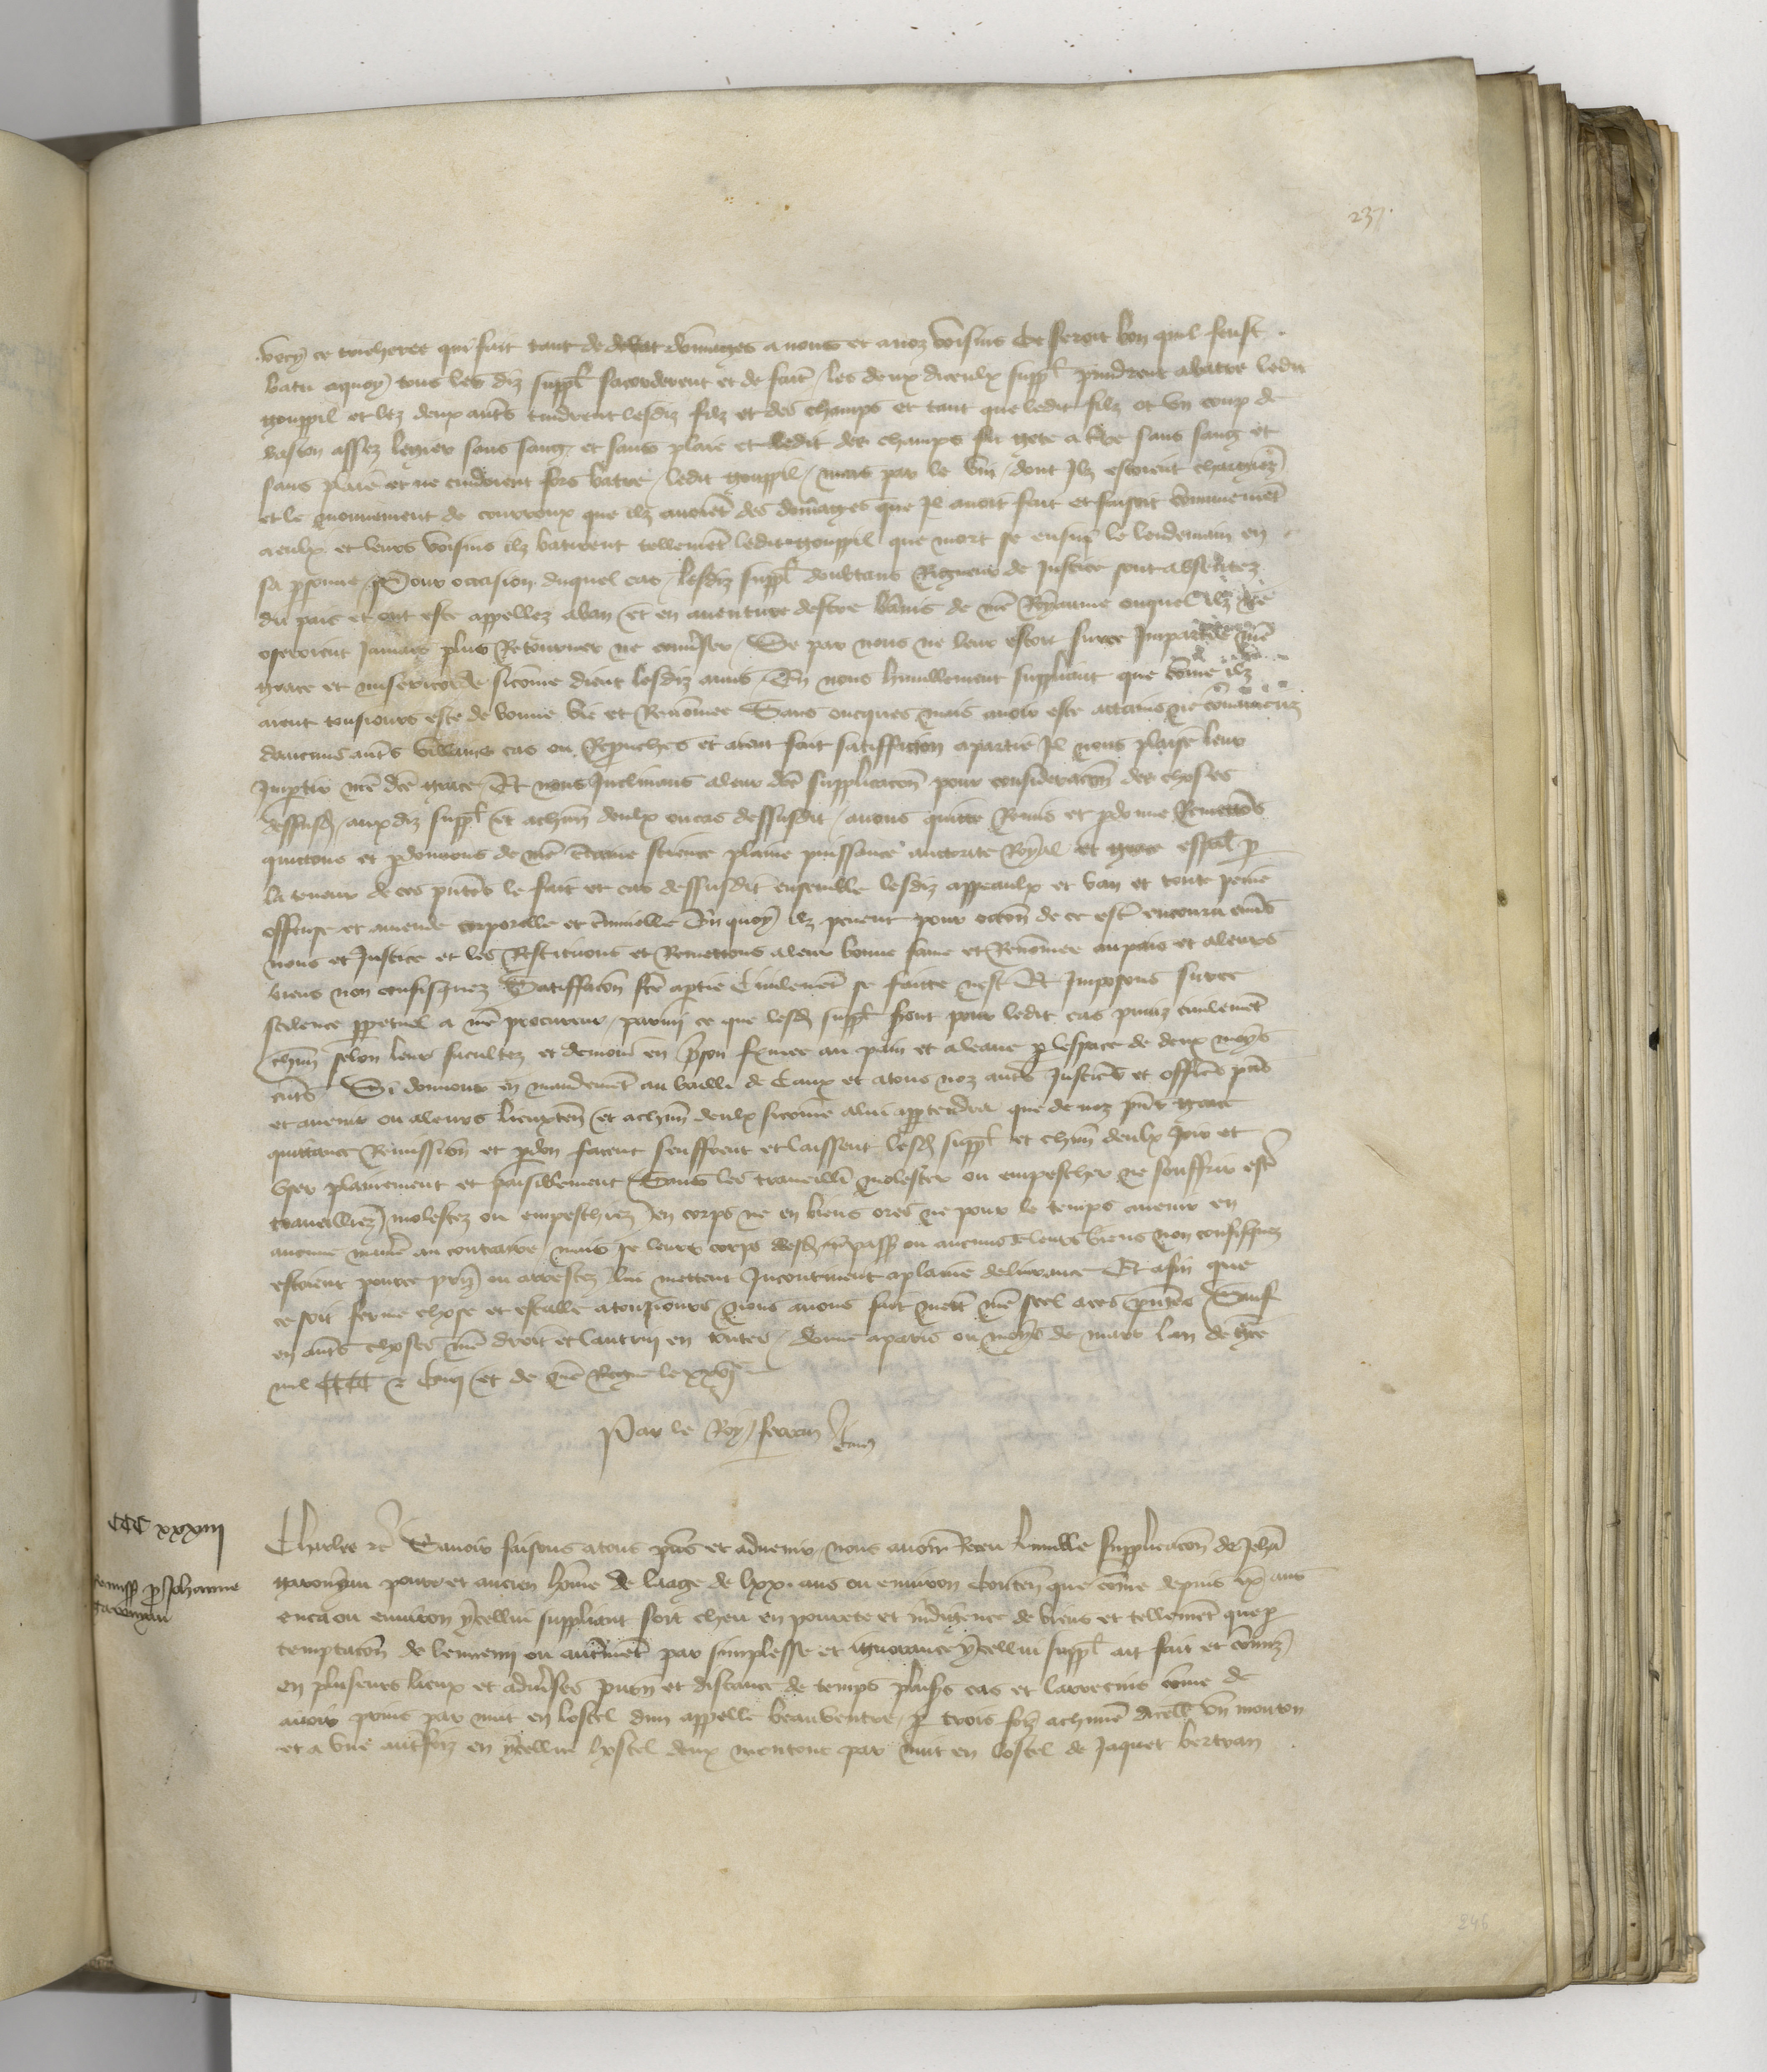 237.
vecy ce tricheres qui fait tant de debat dõmages a nous et a noz voisins Et seroit bon quil feust
batu aquoy tous les diz suppl sacorderent et de fait / les deux diceulx suppl prindrent abatre ledit
gouppil et lez deux aut̃s tindrent lesdiz filz et des champs et tant que ledit filz ot vn coup de
baston assez legier sans sang et sans plaie et ledit des champs fu gete a t̃re sans sang et
sans plaie et ne cuidoient fors batre / ledit gouppil / mais par le vin / dont Ilz estoient chargiez
et le mouuement de courroux que ilz auoiẽt des dõmages que Il auoit fait et faisoit cõmunemẽt
a eulx et leurs voisins ilz batirent tellemẽt ledit gouppil que mort se ensuy le lendemain en
sa p̃sonne / Pour occasion duquel cas / lesdiz suppl doubtans Rigueur de Justice sont absentez
du pais et ont este appellez aban et en auenture destre bãnis de nr̃e Royaume ouquel ilz ne
oseroient Jamais plus Retourner ne conu̾ser / Se par nous ne leur estoit surce Impartie nr̃e
grace et misericorde sicõme dient lesdiz amis / En nous humblement suppliant que cõme ilz
aient tousiours este de bonne vie et Renõmee Sans oncques mais auoir este attains ne cõuaincuz
daucuns aut̃s villains cas ou Reprouches et aient fait satiffacion apartie Il nous plaise leur
Impartir nr̃e dc̃e grace / Et nous Inclinans aleur dc̃e supplicacõn pour consideracõn des choses
dessusd̃ / aux diz suppl et achũn deulx ou cas dessusdit / auons quitte Remis et p̱donne Remettõs
quictons et p̱donnons de nr̃e c̃taine science plaine puissance auctorite Royal et grace esp̃al p̱
la teneur de ces pñtes le fait et cas dessusdit ensemble lesdiz appeaulx et ban et toute peine
offense et amende corporelle et c̃iminelle En quoy ilz peuent pour occõn de ce est̃ encouru enũs
nous et Justice et les Restituons et Remettons aleur bonne fame et Renõmee au pais et aleurs
biens non confisquez Satiffacõn fc̃e a p̱tie Ciuilemẽt se faitte nest Et Imposons surce
scilence p̱petuel a nr̃e procureur / parmi ce que lesd̃ suppl seront pour ledit cas puniz ciuilemẽt
chũn selon leurs facultez et demour̃ en p̃son fermee au pain et aleaue p̱ lespace de deux moys
entrs̃ Si donnons en mandemẽt au bailli de Caux et atous noz aut̃s Justiciẽs et officiẽs pñs
et auenir ou aleurs lieuxten̾ et achũn deulx sicõme alui app̱tendra que de noz pñt grace
quittance Remission et p̱don facent seuffrent et laissent lesd̃ suppl et chũn deulx Joir et
vser plainement et paisiblement Sans les traueillr̃ molester ou empescher ne souffrir est̃
traueilliez molestez ou empeschiez en corps ne en biens ores ne pour le temps auenir en
aucune mañie au contraire / mais se leurs corps ou aucuns de leurs biens non confisquez
estoient pource prĩs ou arrestez lui mettent Incontinent aplaine deliurance Et afin que
ce soit ferme chose et estable atousiours / Nous auons fait mett̃ nr̃e seel aces pñtes Sauf
en aut̃s choses nr̃e droit et lautruy en toutes / donne aparis ou moys de mars lan de gr̃ce
mil CCCC et et de nr̃e Regne le xxvjᵉ
Par le Roy / ferron
CCC xxxiiij
Remiss̃ p̱ Johanne

Charles zc̃ Sauoir faisons atous pñs et aduenir / nous auoir Receu humble supplicacõn de Jehã
poure et ancien hõme de laage de lxx ans ou enuiron conten̾ que cõme depuis ix ans
enca ou enuiron ycellui suppliant soit cheu en pourete et Indigence de biens et tellemẽt que p̱
temptacõn de lennemi ou autremẽt par simplesse et ignorance ycellui suppl ait fait et cõmiz
en pluseurs lieux et et distance de temps plus̾s cas et larrecins cõme de
auoir prins par nuit en lostel dun appelle beauventre / p̱ trois foiz achũne dicell vn mouton
et a vne aut̃foiz en ycellui hostel deux moutons par nuit en lostel de Jaquet bertran
246